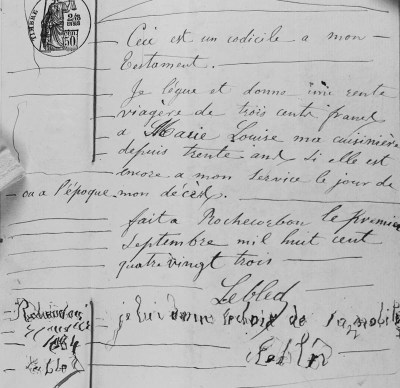 TIMBRE
50
Ceci est un codicile a mon
Testament.
Je lègue et donne une rente
viagère de trois cents francs
a Marie Louise ma cuisinière
depuis trente ans si elle est
encore a mon service le jour de
ou a l'époque mon décès.
fait a Rochecorbon le premier
septembre mil huit cent
quatrevingt trois
Lebled
je lui donne de
Lebled